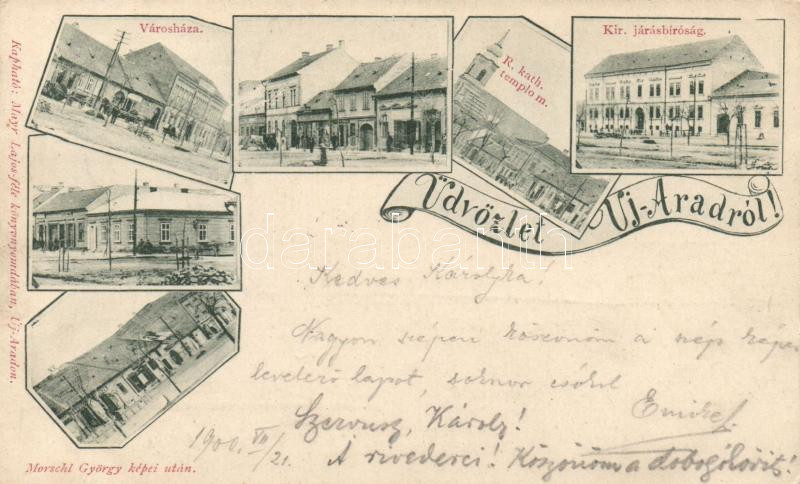 Városháza.
R. kath.
templom.
Kir. járásbíróság.
Üdvözlet Uj-Aradról!
Kapható: Mayr Lajos-féle könyvnyomdában, Uj-Aradon.
darabanth
Kedves Károlyka!
Nagyon szépen köszönöm a szép képes
levelező lapot, sokszor csókol
Szervusz, Károly!
1900. VII/21.
A rivederci! Köszönöm a
Morschl György képei után.